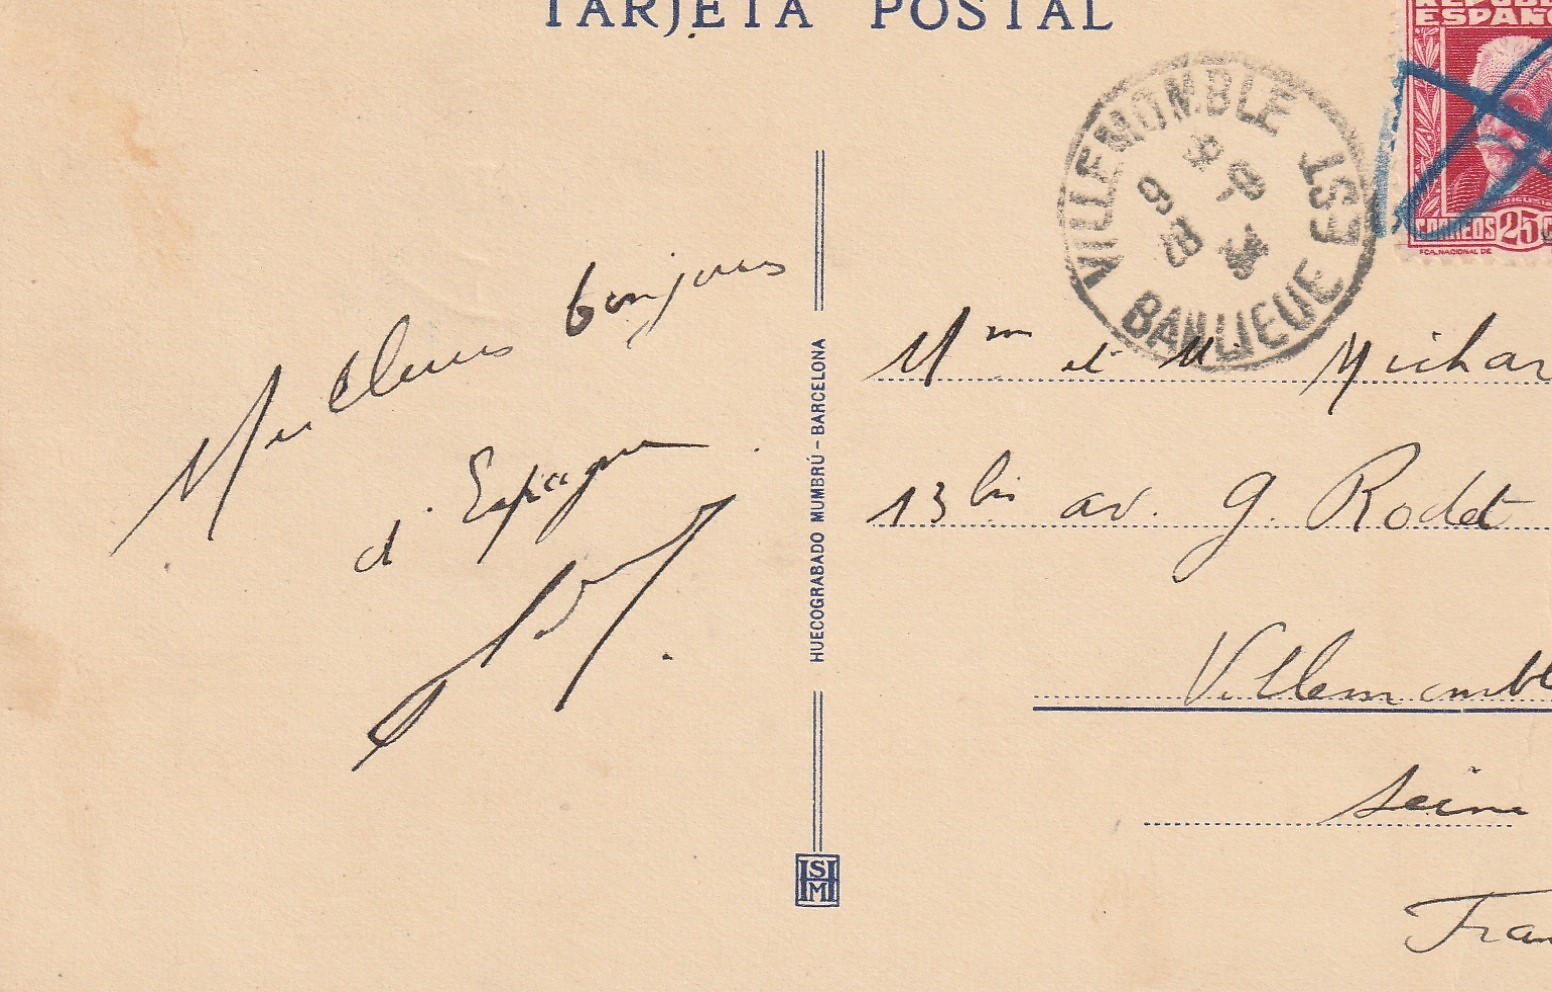 TARJETA POSTAL
REPUBL
ESPAÑO
CORREOS 25 C
FCA. NACIONAL DE
VILLEMOMBLE
BANLIEUE EST
Meilleurs bonjours
d'Espagne
HUECOGRABADO MUMBRÚ - BARCELONA
Mme et M. Michar
13 bis av. G. Rodet
Villemombl
Seine
Fran
HSM